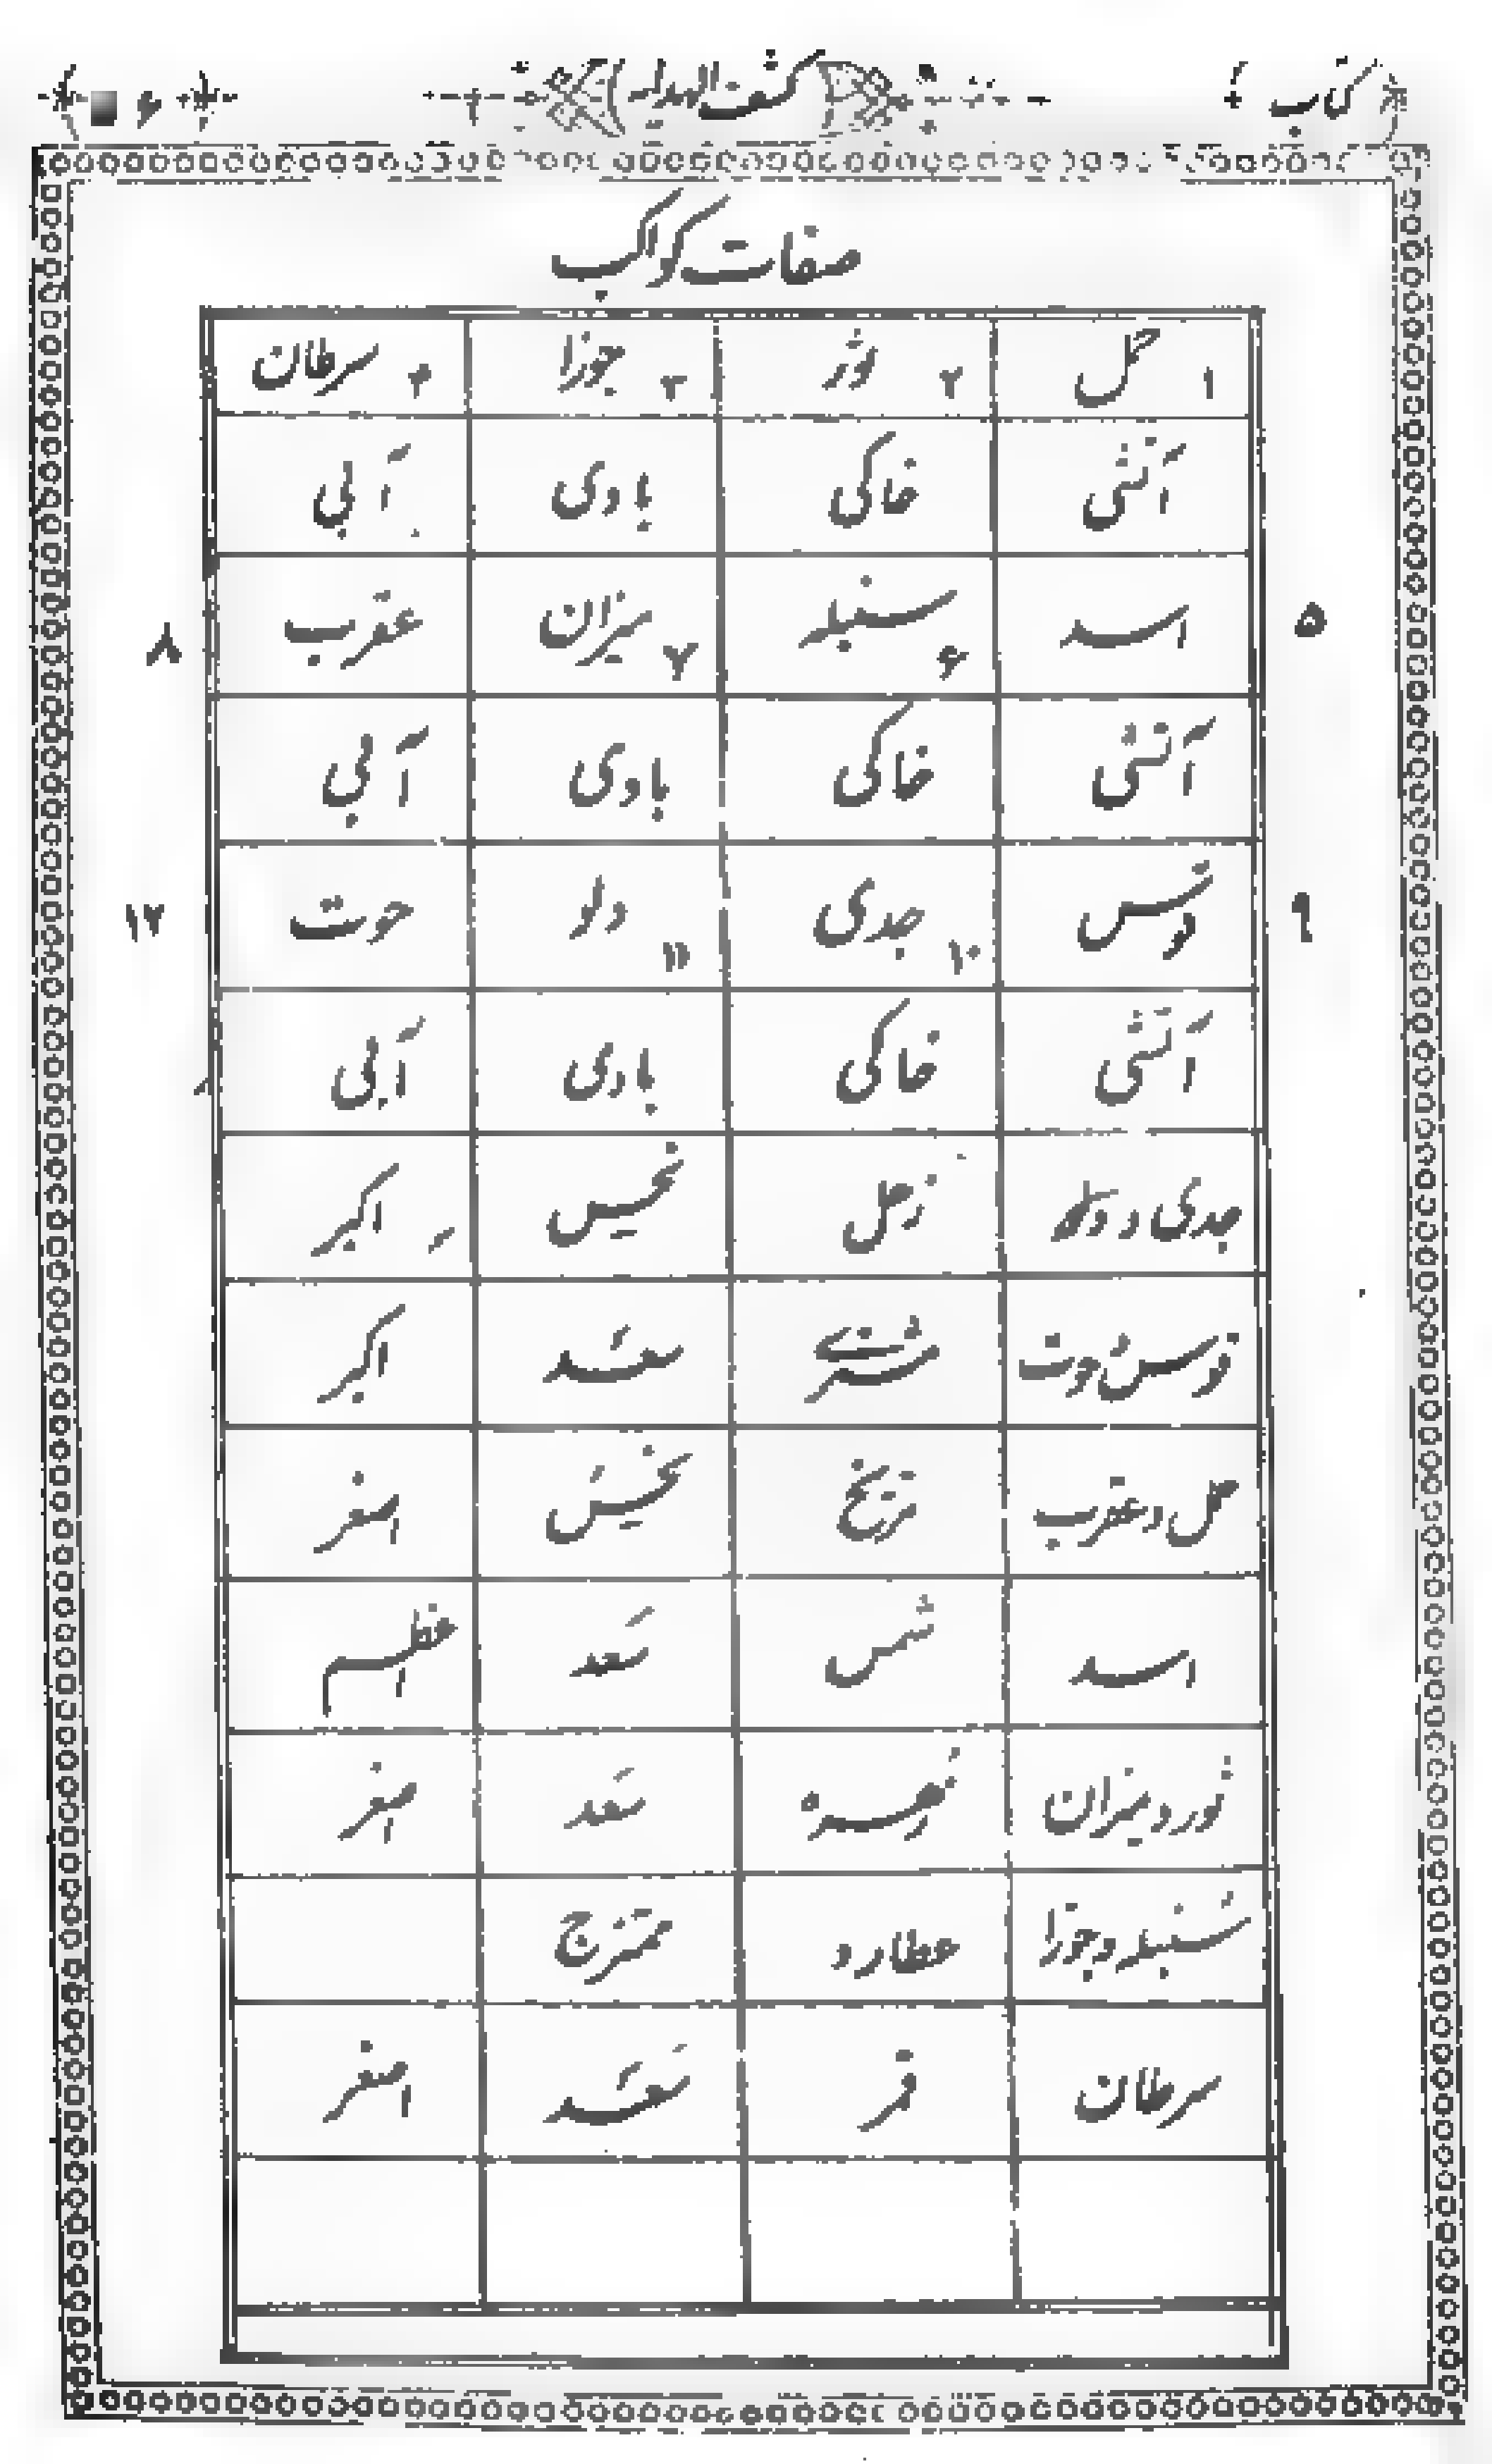 کتاب کشف الهدایه ۶
صفات کواکب
۱ حمل ۲ ثور ۳ جوزا ۴ سرطان
آتشی خاکی بادی آبی
۵ اسد ۶ سنبله ۷ میزان عقرب ۸
آتشی خاکی بادی آبی
۹ قوس ۱۰ جدی ۱۱ دلو حوت ۱۲
آتشی خاکی بادی آبی
جدی و دلو زحل نحس اکبر
قوس حوت مشتری سعد اکبر
حمل و عقرب مریخ نحس اصغر
اسد شمس سعد اعظم
ثور و میزان زهره سعد اصغر
سنبله و جوزا عطارد ممتزج
سرطان قمر سعد اصغر